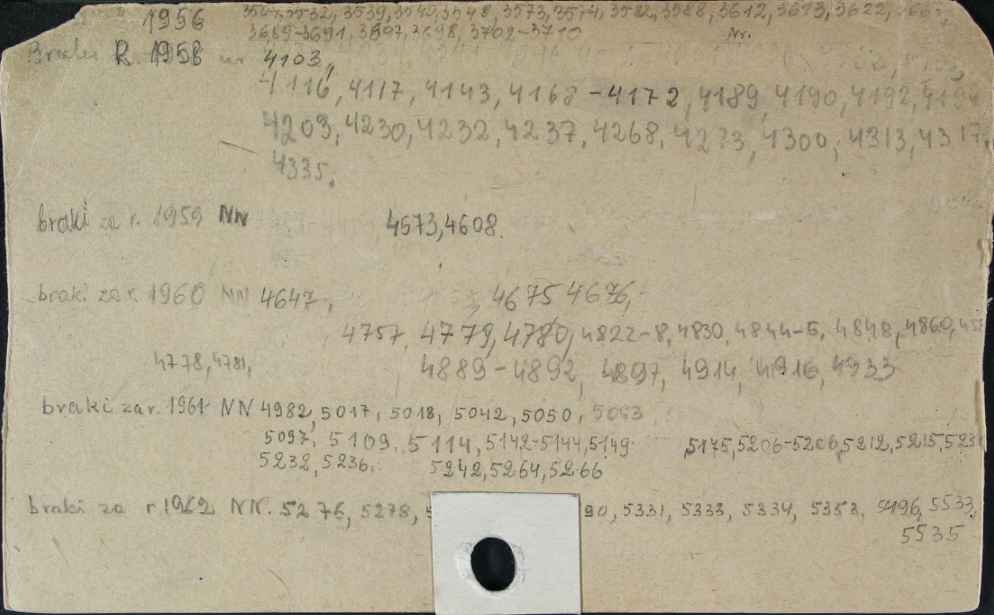 1956 3532, 3539, 3540, 3548, 3573, 3574, 3582, 3588, 3612, 3613, 3622,
3689-3691, 3697, 3698, 3702-3710 Nr.
Braki R. 1958 nr 4103,
4116, 4117, 4143, 4168-4172, 4189, 4190, 4192, 4194
4203, 4230, 4232, 4237, 4268, 4273, 4300, 4313, 4317,
4335.
braki za r. 1959 NN 4573, 4608.
braki za r. 1960 NN 4647, 4675 4676,
4757, 4779, 4780, 4822-8, 4830, 4844-5, 4848, 4860,
4778, 4781, 4889-4892, 4897, 4914, 4916, 4933
braki za r. 1961 NN 4982, 5017, 5018, 5042, 5050, 5063
5097, 5109, 5114, 5142-5144, 5149 5175, 5206-5208, 5212, 5215, 5231
5232, 5236, 5242, 5264, 5266
braki za r 1962 NN. 5276, 5278, 90, 5331, 5333, 5334, 5353, 5496, 5533,
5535